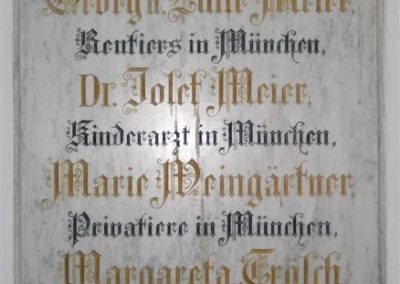 Georg u. Meier,
Rentiers in München,
Dr. Josef Meier,
Kinderarzt in München,
Marie Weingärtner,
Privatiere in München,
Margareta Trösch